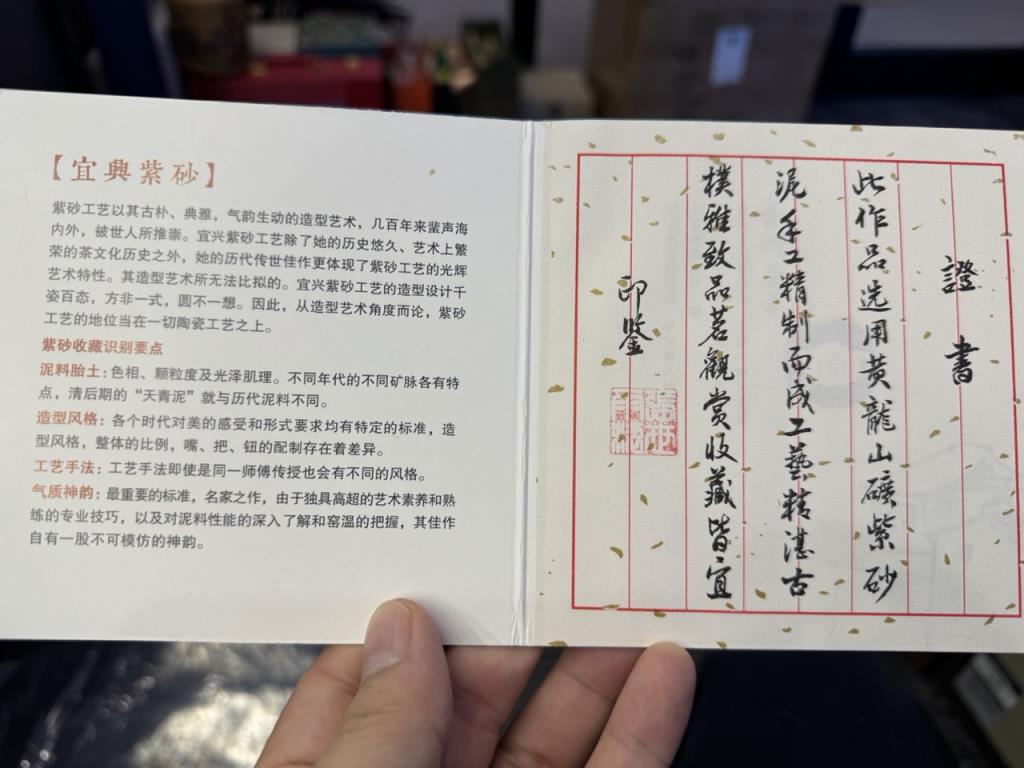 【宜典紫砂】
紫砂工艺以其古朴、典雅，气韵生动的造型艺术，几百年来蜚声海
内外，被世人所推崇。宜兴紫砂工艺除了她的历史悠久、艺术上繁
荣的茶文化历史之外，她的历代传世佳作更体现了紫砂工艺的光辉
艺术特性。其造型艺术所无法比拟的。宜兴紫砂工艺的造型设计千
姿百态，方非一式，圆不一想。因此，从造型艺术角度而论，紫砂
工艺的地位当在一切陶瓷工艺之上。
紫砂收藏识别要点
泥料胎土：色相、颗粒度及光泽肌理。不同年代的不同矿脉各有特
点，清后期的“天青泥”就与历代泥料不同。
造型风格：各个时代对美的感受和形式要求均有特定的标准，造
型风格，整体的比例，嘴、把、钮的配制存在着差异。
工艺手法：工艺手法即使是同一师傅传授也会有不同的风格。
气质神韵：最重要的标准，名家之作，由于独具高超的艺术素养和熟
练的专业技巧，以及对泥料性能的深入了解和窑温的把握，其佳作
自有一股不可模仿的神韵。
證書
此作品选用黄龍山礦紫砂
泥手工精制而成工藝精湛古
樸雅致品茗觀赏收藏皆宜
印鉴